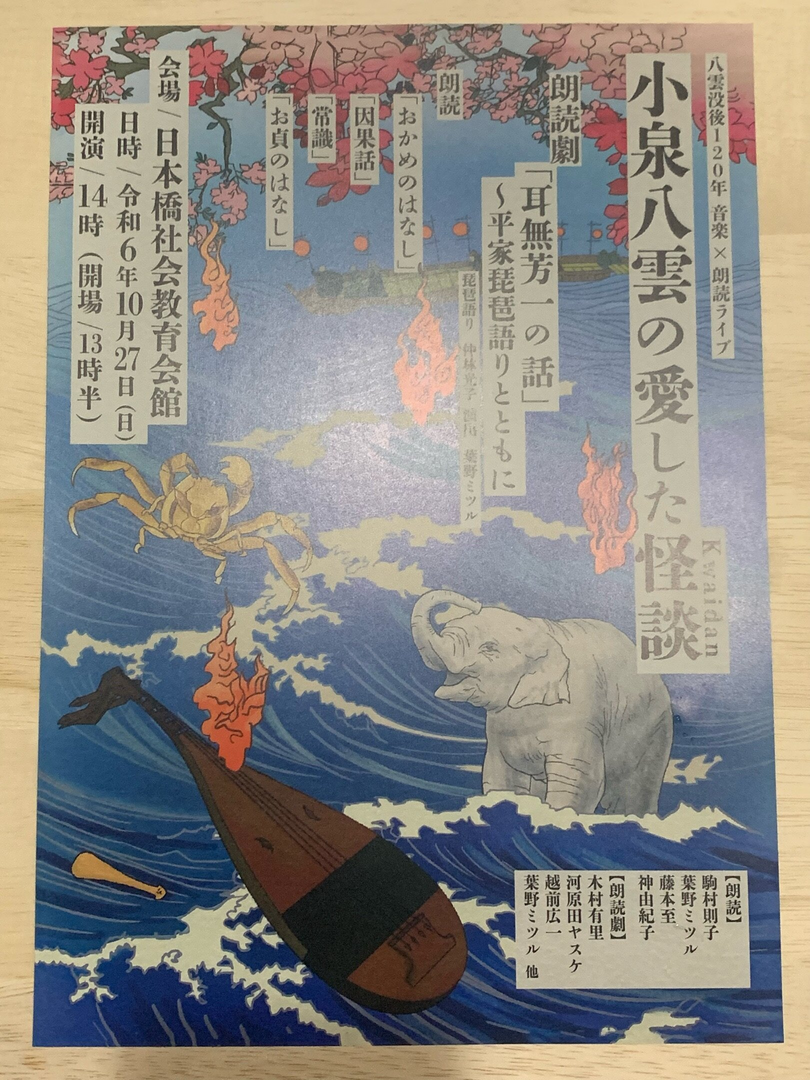 八雲没後120年 音楽×朗読ライブ
小泉八雲の愛した怪談
Kwaidan
朗読劇
「耳無芳一の話」
～平家琵琶語りとともに
琵琶語り 仲林光子 葉野ミツル
朗読
「おかめのはなし」
「因果話」
「常識」
「お貞のはなし」
会場/日本橋社会教育会館
日時/令和6年10月27日(日)
開演/14時(開場/13時半)
【朗読】
駒村則子
葉野ミツル
藤本至
神由紀子
【朗読劇】
木村有里
河原田ヤスケ
越前広一
葉野ミツル 他